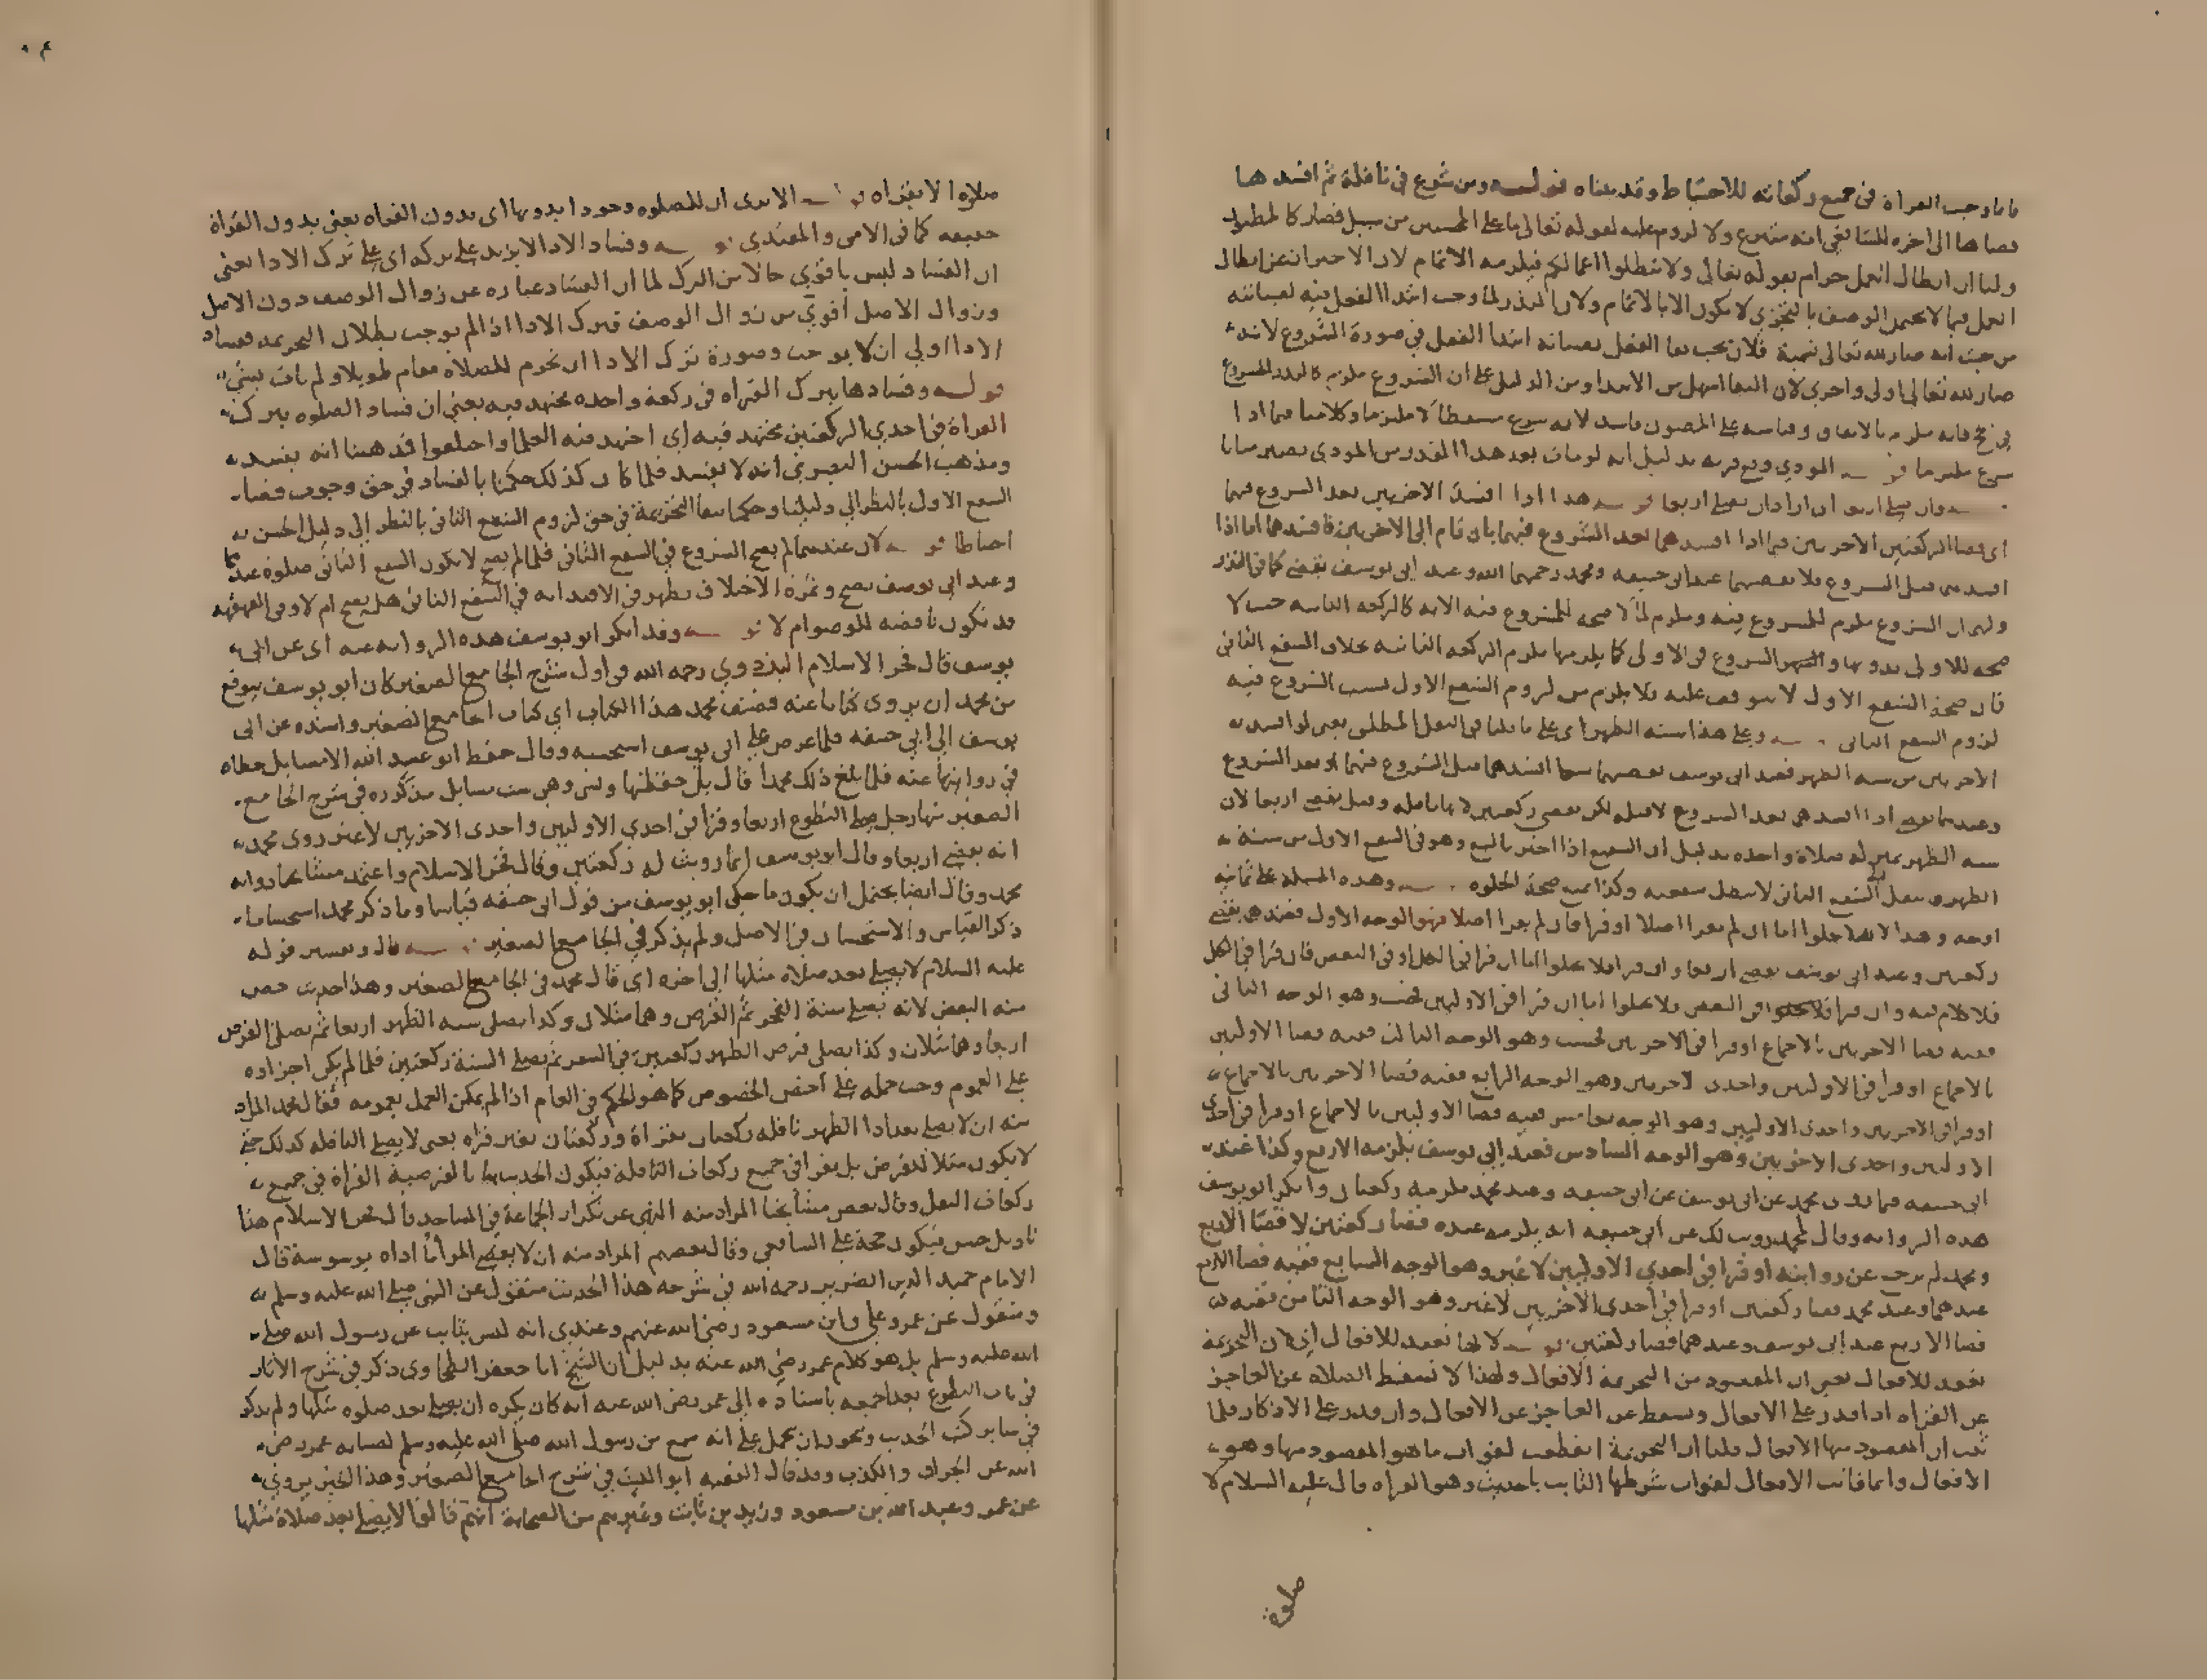 فاما وجب القراة في جميع ركعاته للاحتياط وقد بيناه قوله ومن شرع في نافلة ثم افسدها
قضاها الى اخره للشافعي انه متبرع ولا لزوم عليه لقوله تعالى ما على المحسنين من سبيل فصار كالمظنون
ولنا ان ابطال العمل حرام بقوله تعالى ولا تبطلوا اعمالكم فيلزمه الاتمام لان الاحتراز عن ابطال
العمل فيما لا يحتمل الوصف بالتجزي لا يكون الا بالاتمام ولان النذر لما وجب ابتدا الفعل فيه لصيانته
من حيث انه صار لله تعالى تسمية فلان يجب بقا الفعل بصيانة ابتدا الفعل في صورة الشروع لانه
صار لله تعالى اولى واحرى لان البقا اسهل من الابتدا ومن الدليل على ان الشروع ملزم كالنذر الشروع
في الحج فانه ملزم بالاتفاق وقياسه على المظنون فاسد لانه شرع مسقطا لا ملزما وكلامنا فيما اذا
شرع ملتزما قوله المودي وقع قربه بدليل انه لو مات بعد هذا القدر من المودى يصير مثابا
وان صلى اربعا اي اراد ان يصلي اربعا قوله هذا اذا افسد الاخريين بعد الشروع فيهما
اي قضا الركعتين الاخريين فيما اذا افسدهما بعد الشروع فيهما بان قام الى الاخريين فافسدهما اما اذا
افسد من قبل الشروع فلا يقضيهما عند ابي حنيفه ومحمد رحمهما الله وعند ابي يوسف يقضي كما في النذر
ولهما ان الشروع ملزم للمشروع فيه وملزم لما لا صحه للمشروع فيه الا به كالركعه الثانيه حيث لا
صحه للاولى بدونها والشهر الشروع في الاولى كما يلزمها ملزم الركعه الثانيه بخلاف الشفع الثاني
فان صحة الشفع الاول لا يتوقف عليه فلا يلزم من لزوم الشفع الاول بسبب الشروع فيه
لزوم الشفع الثاني قوله وعلى هذا سنه الظهر اي على ما قلنا في النفل المطلق يعني لو افسد
الاخريين من سنه الظهر فعند ابي يوسف يقضيهما سوا افسدهما قبل الشروع فيهما او بعد الشروع
وعندهما يقضي اذا افسدهن بعد الشروع لا قبله لكن يقضي ركعتين لانها نافله وقيل يقضي اربعا لان
سنه الظهر بمنزله صلاة واحده بدليل ان الشفيع اذا اخبر بالبيع وهو في الشفع الاول من سنة
الظهر فينتقل الى الشفع الثاني لا تبطل شفعته وكذا يمنع صحة الخلوه قوله وهذه المسئلة على ثمانيه
اوجه وهذا لانه لا يخلوا اما ان لم يقرا اصلا او قرا فان لم يقرا اصلا فهو الوجه الاول فعندهما يقضي
ركعتين وعند ابي يوسف يقضي اربعا وان قرا فلا يخلوا اما ان قرا في الكل او في البعض فان قرا في الكل
فلا كلام فيه وان قرا في البعض فلا يخلوا اما ان قرا في الاوليين فحسب وهو الوجه الثاني
فعليه قضا الاخريين بالاجماع او قرا في الاخريين فحسب وهو الوجه الثالث فعليه قضا الاوليين
بالاجماع او قرا في الاوليين واحدى الاخريين وهو الوجه الرابع فعليه قضا الاخريين بالاجماع
او قرا في الاخريين واحدى الاوليين وهو الوجه الخامس فعليه قضا الاوليين بالاجماع او قرا في احدى
الاوليين واحدى الاخريين وهو الوجه السادس فعند ابي يوسف يلزمه الاربع وكذا عند
ابي حنيفه فيما يروى محمد عن ابي يوسف عن ابي حنيفه وعند محمد يلزمه ركعتان وانكر ابو يوسف
هذه الروايه وقال لمحمد رويت لك عن ابي حنيفه انه يلزمه عنده قضا ركعتين لا قضا الاربع
ومحمد لم يرجع عن روايته او قرا في احدى الاوليين لا غير وهو الوجه السابع فعليه قضا الاربع
عندهما وعند محمد قضا ركعتين او قرا في احدى الاخريين لا غير وهو الوجه الثامن فعليه
قضا الاربع عند ابي يوسف وعندهما قضا ركعتين قوله لانها تعقد للافعال اي لان التحريمة
تعقد للافعال يعني ان المقصود من التحريمة الافعال ولهذا لا تسقط الصلاة عن العاجز
عن القراه اذا قدر على الافعال وتسقط عن العاجز عن الافعال وان قدر على الاذكار فلما
ثبت ان المقصود منها الافعال قلنا ان التحريمة انقطعت لفوات ما هو المقصود منها وهو
الافعال وانما فاتت الافعال لفوات شرطها الثابت بالحديث وهو القراه قال عليه السلام لا
صلوة
صلاة الا بقراه قوله الا يرى ان للصلوة وجودا بدونها اي بدون القراه يعني بدون القراة
حقيقه كما في الامي والمقتدي قوله وفساد الادا لا يزيد على تركه اي على ترك الادا يعني
ان الفساد ليس باقوى حالا من الترك لما ان الفساد عباره عن زوال الوصف دون الاصل
وزوال الاصل اقوى من زوال الوصف فترك الادا اذا لم يوجب بطلان التحريمه ففساد
الادا اولى ان لا يوجب وصورة ترك الادا ان يحرم للصلاة فقام طويلا ولم يات بشي
قوله وفسادها بترك القراه في ركعة واحده مجتهد فيه يعني ان فساد الصلوه بترك
القراة في احدي الركعتين مجتهد فيه اي اجتهد فيه العلما واختلفوا فمذهبنا انه يفسد
ومذهب الحسن البصري انه لا يفسد فلما كان كذلك حكمنا بالفساد في حق وجوب قضا
الشفع الاول بالنظر الى دليلنا وحكمنا ببقا التحريمة في حق لزوم الشفع الثاني بالنظر الى دليل الحسن
احتياطا قوله لان عندهما لم يصح الشروع في الشفع الثاني فلما لم يصح لا يكون الشفع الثاني صلوة عندهما
وعند ابي يوسف يصح وثمرة الاختلاف يظهر في الاقتدا به في الشفع الثاني هل يصح ام لا وفي القهقهه
هل تكون ناقضه للوضو ام لا قوله وقد انكر ابو يوسف هذه الروايه عنه اي عن ابي
يوسف قال فخر الاسلام البزدوي رحمه الله في اول شرح الجامع الصغير كان ابو يوسف يتوقع
من محمد ان يروي كتابا عنه فصنف محمد هذا الكتاب اي كتاب الجامع الصغير واسنده عن ابي
يوسف الى ابي حنيفه فلما عرض على ابي يوسف استحسنه وقال حفظ ابو عبد الله الا مسايل خطاه
في روايتها عنه فلما بلغ ذلك محمدا قال بل حفظتها ونسي وهي ست مسايل مذكوره في شرح الجامع
الصغير منها رجل يصلي التطوع اربعا وقرا في احدي الاوليين واحدى الاخريين لا غير روى محمد
انه يقضي اربعا وقال ابو يوسف انما رويت له ركعتين وقال فخر الاسلام واعتمد مشايخنا روايه
محمد وقال ايضا يحتمل ان يكون ما حكى ابو يوسف من قول ابي حنيفه قياسا وما ذكر محمد استحسانا
ذكر القياس والاستحسان في الاصل ولم يذكر في الجامع الصغير قوله قال وتفسير قوله
عليه السلام لا يصلى بعد صلاة مثلها الى اخره اي قال محمد في الجامع الصغير وهذا حديث خص
منه البعض لانه يصلي سنة الفجر ثم الفرض وهما مثلان وكذا يصلي سنه الظهر اربعا ثم يصلى الفرض
اربعا وهما مثلان وكذا يصلي فرض الظهر ركعتين في السفر ثم يصلي السنة ركعتين فلما لم يكن اجراوه
على العموم وجب حمله على اخص الخصوص كما هو الحكم في العام اذا لم يمكن العمل بعمومه فقال محمد المراد
منه ان لا يصلي بعد ادا الظهر نافله ركعتان بقراة وركعتان بغير قراه يعني لا يصلي النافله كذلك حتى
لا يكون مثلا للفرض بل يقرا في جميع ركعات النافله فيكون الحديث بيانا لفرضية القراة في جميع
ركعات النفل وقال بعض مشايخنا المراد منه النهي عن تكرار الجماعة في المساجد قال فخر الاسلام هذا
تاويل حسن فيكون حجة على الشافعي وقال بعضهم المراد منه ان لا يقضي المرا ما اداه بوسوسة قال
الامام حميد الدين الضرير رحمه الله في شرحه هذا الحديث منقول عن النبي صلى الله عليه وسلم
ومنقول عن عمر وعلي وابن مسعود رضي الله عنهم وعندي انه ليس بثابت عن رسول الله صلى
الله عليه وسلم بل هو كلام عمر رضي الله عنه بدليل ان الشيخ ابا جعفر الطحاوي ذكر في شرح الاثار
في باب التطوع بعد الجمعه باسناده الى عمر رضي الله عنه انه كان يكره ان يصلي بعد صلوة مثلها ولم يذكر
في ساير كتب الحديث ويجوز ان يحمل على انه سمع من رسول الله صلى الله عليه وسلم لصيانه عمر رضي
الله عن الجزاف والكذب وقد قال الفقيه ابو الليث في شرح الجامع الصغير وهذا الخبر يروي
عن عمر وعبد الله بن مسعود وزيد بن ثابت وغيرهم من الصحابة انهم قالوا لا يصلى بعد صلاة مثلها